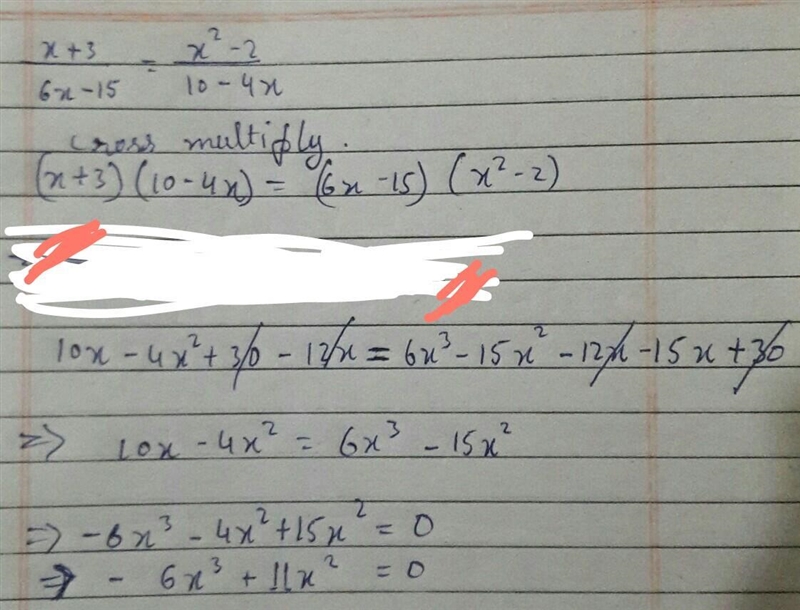 x+3 / 6x-15 = x²-2 / 10-4x
cross multiply.
(x+3) (10-4x) = (6x-15) (x²-2)
10x - 4x² + 30 - 12x = 6x³ - 15x² - 12x - 15x + 30
=> 10x - 4x² = 6x³ - 15x²
=> -6x³ - 4x² + 15x² = 0
=> - 6x³ + 11x² = 0